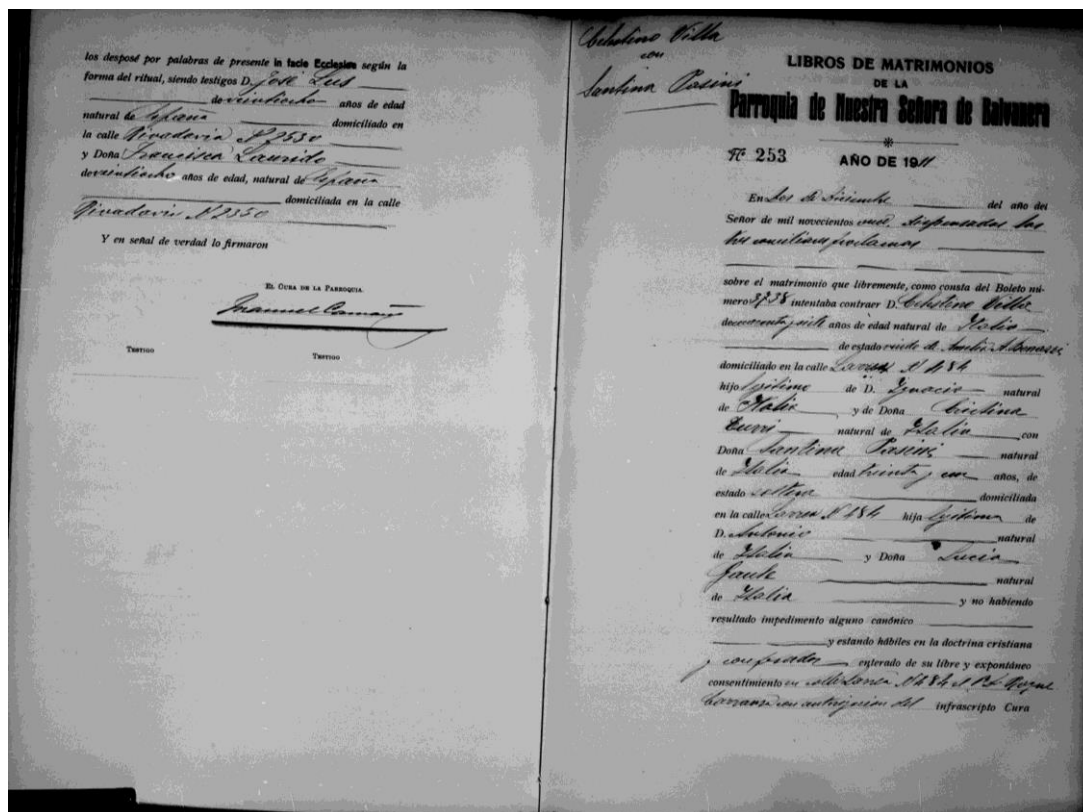 los desposé por palabras de presente in facie Ecclesiæ según la
forma del ritual, siendo testigos D. José Lus
de veintiocho años de edad
natural de España domiciliado en
la calle Rivadavia Nº
y Doña Francisca Laurido
de veintiocho años de edad, natural de España
domiciliada en la calle
Rivadavia Nº 2350
Y en señal de verdad lo firmaron
EL CURA DE LA PARROQUIA.
Manuel
TESTIGO TESTIGO
Celestino Villa
con
Santina Pasini
LIBROS DE MATRIMONIOS
DE LA
Parroquia de Nuestra Señora de Balvanera
Nº 253 AÑO DE 1911
En dos de Diciembre del año del
Señor de mil novecientos once, dispensadas las
tres conciliares proclamas
sobre el matrimonio que libremente, como consta del Boleto nú-
mero 3738 intentaba contraer D. Celestino Villa
de cuarenta y siete años de edad natural de Italia
de estado viudo de
domiciliado en la calle Larrea Nº 484
hijo legítimo de D. Ignacio natural
de Italia y de Doña Cristina
natural de Italia con
Doña Santina Pasini natural
de Italia edad treinta y un años, de
estado soltera domiciliada
en la calle Larrea Nº 484 hija legítima de
D. Antonio natural
de Italia y Doña Lucia
natural
de Italia y no habiendo
resultado impedimento alguno canónico
y estando hábiles en la doctrina cristiana
y confesados enterado de su libre y expontáneo
consentimiento en calle Larrea Nº 484 el Roque
Carranza con autorización del infrascripto Cura